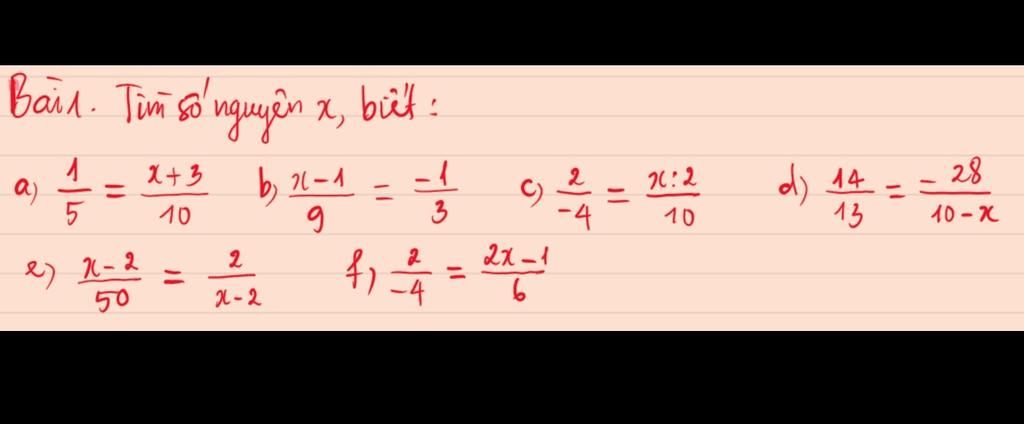 Bài 1. Tìm số nguyên x, biết:
a) 1/5 = (x+3)/10 b) (x-1)/9 = -1/3 c) 2/-4 = (x:2)/10 d) 14/13 = -28/(10-x)
e) (x-2)/50 = 2/(x-2) f) 2/-4 = (2x-1)/6